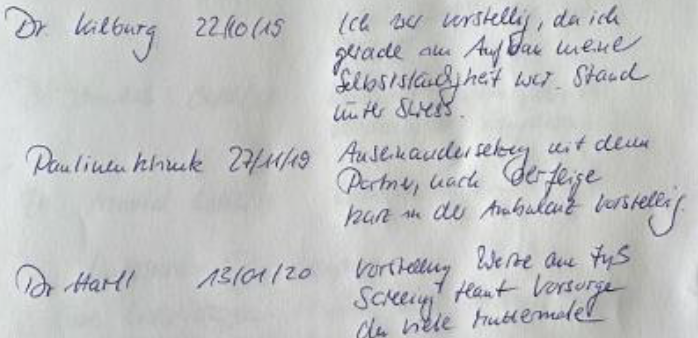 Dr. Kilburg 22/10/19 Ich war vorstellig, da ich
gerade am Aufbau meine
Selbstständigkeit war. Stand
unter Stress.
Paulinenklinik 27/11/19 Auseinandersetzung mit dem
Partner, nach
kurz in der Ambulanz vorstellig.
Dr Hartl 13/01/20 Vorstellung am
Haut Vorsorge
da viele Muttermale